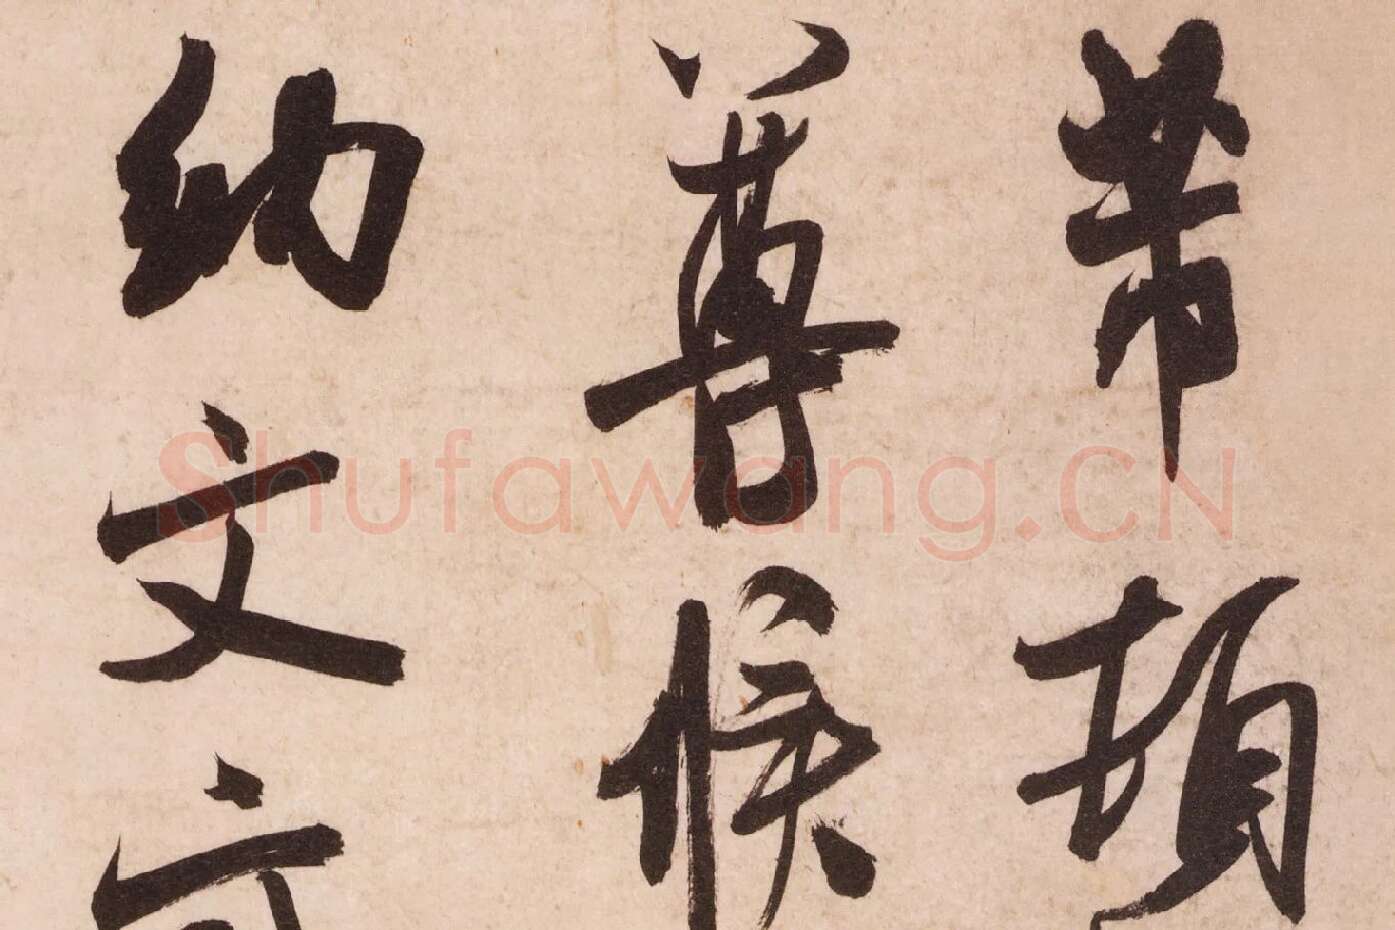 芾頓
尊候
納文
Shufawang.CN